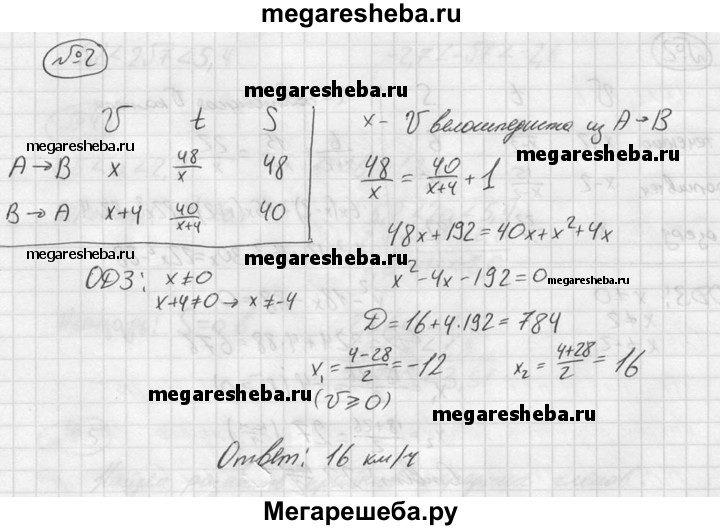 megaresheba.ru
№2
megaresheba.ru
V t S
megaresheba.ru
A→B x 48/x 48
B→A x+4 40/(x+4) 40
x – V велосипедиста из A→B
megaresheba.ru
48/x = 40/(x+4) + 1
48x+192=40x+x²+4x
megaresheba.ru
megaresheba.ru
ОДЗ: x≠0
x+4≠0→x≠-4
x²-4x-192=0
megaresheba.ru
D=16+4·192=784
x₁=(4-28)/2=-12
x₂=(4+28)/2=16
megaresheba.ru
(V⩾0)
megaresheba.ru
Ответ: 16 км/ч
Мегарешеба.ру